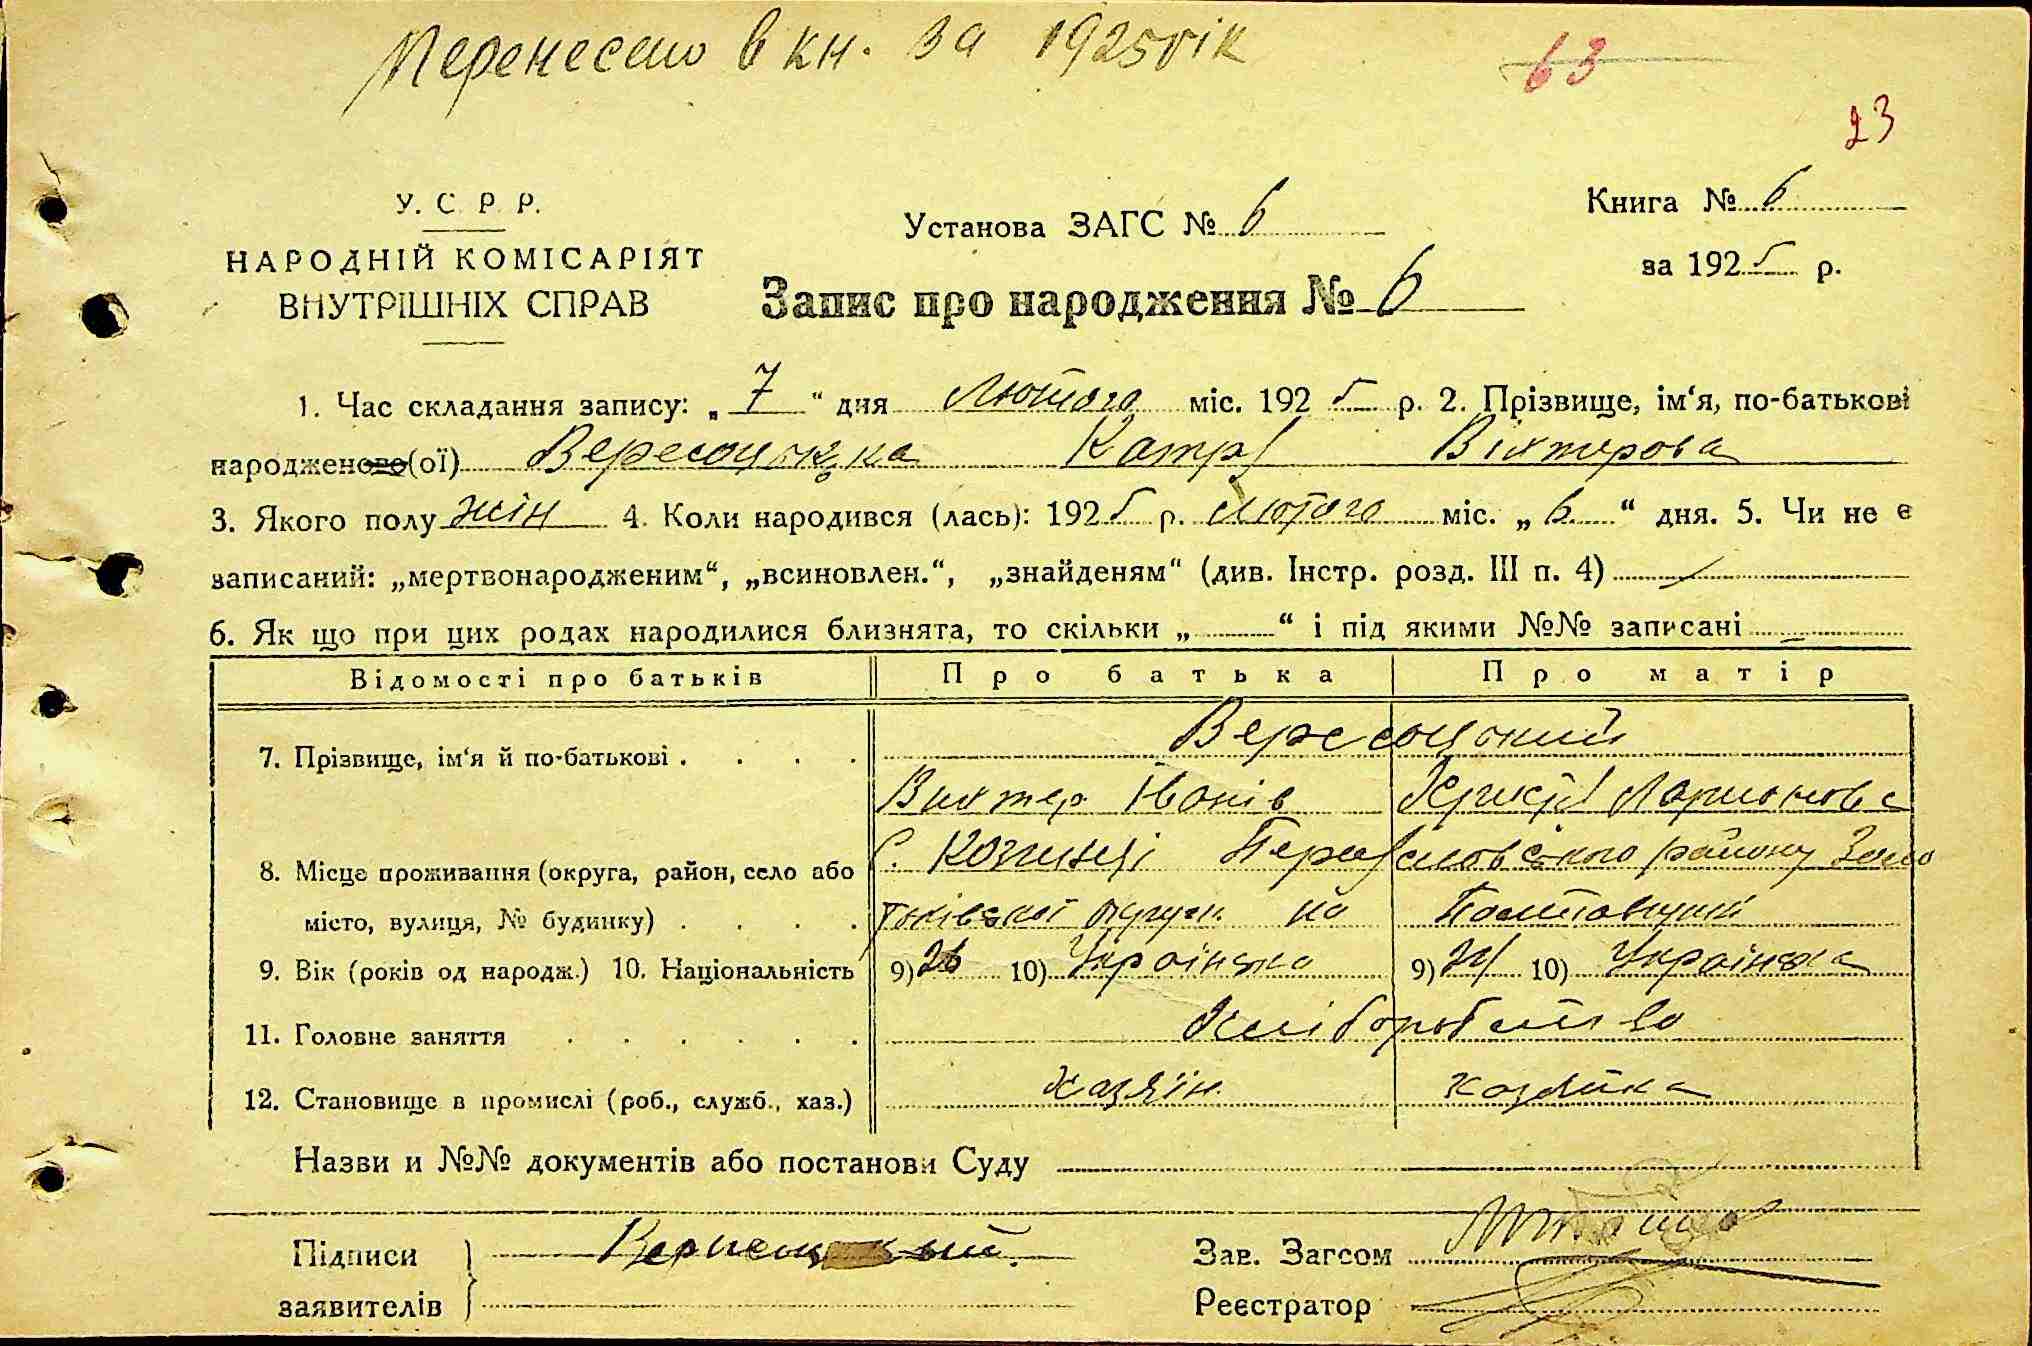 Перенесено в кн. за 1925 рік
63
23
У. С. Р. Р.
НАРОДНІЙ КОМІСАРІЯТ
ВНУТРІШНІХ СПРАВ
Установа ЗАГС № 6
Книга № 6
за 1925 р.
Запис про народження № 6
1. Час складання запису: „ 7 “ дня Лютого міс. 1925 р. 2. Прізвище, ім‘я, по-батькові
народженого(ої) Вересоцька Катря Віктерова
3. Якого полу жін 4. Коли народився (лась): 1925 р. лютого міс. „ 6 “ дня. 5. Чи не є
записаний: „мертвонародженим“, „всиновлен.“, „знайденям“ (див. Інстр. розд. III п. 4)
6. Як що при цих родах народилися близнята, то скільки „ “ і під якими №№ записані
Відомості про батьків Про батька Про матір
7. Прізвище, ім‘я й по-батькові . . . . Вересоцький
Виктер Іванів Ларионова
8. Місце проживання (округа, район, село або
с. Козинці Переяславського району Золо
місто, вулиця, № будинку) . . . .
тонівської округи на Полтавщині
9. Вік (років од народж.) 10. Національність 9) 26 10) Українська 9) 24 10) Українська
11. Головне заняття . . . . . . Хліборобство
12. Становище в промислі (роб., служб., хаз.) хазяїн хазяйка
Назви и №№ документів або постанови Суду
Підписи
заявителів
Зав. Загсом
Реєстратор